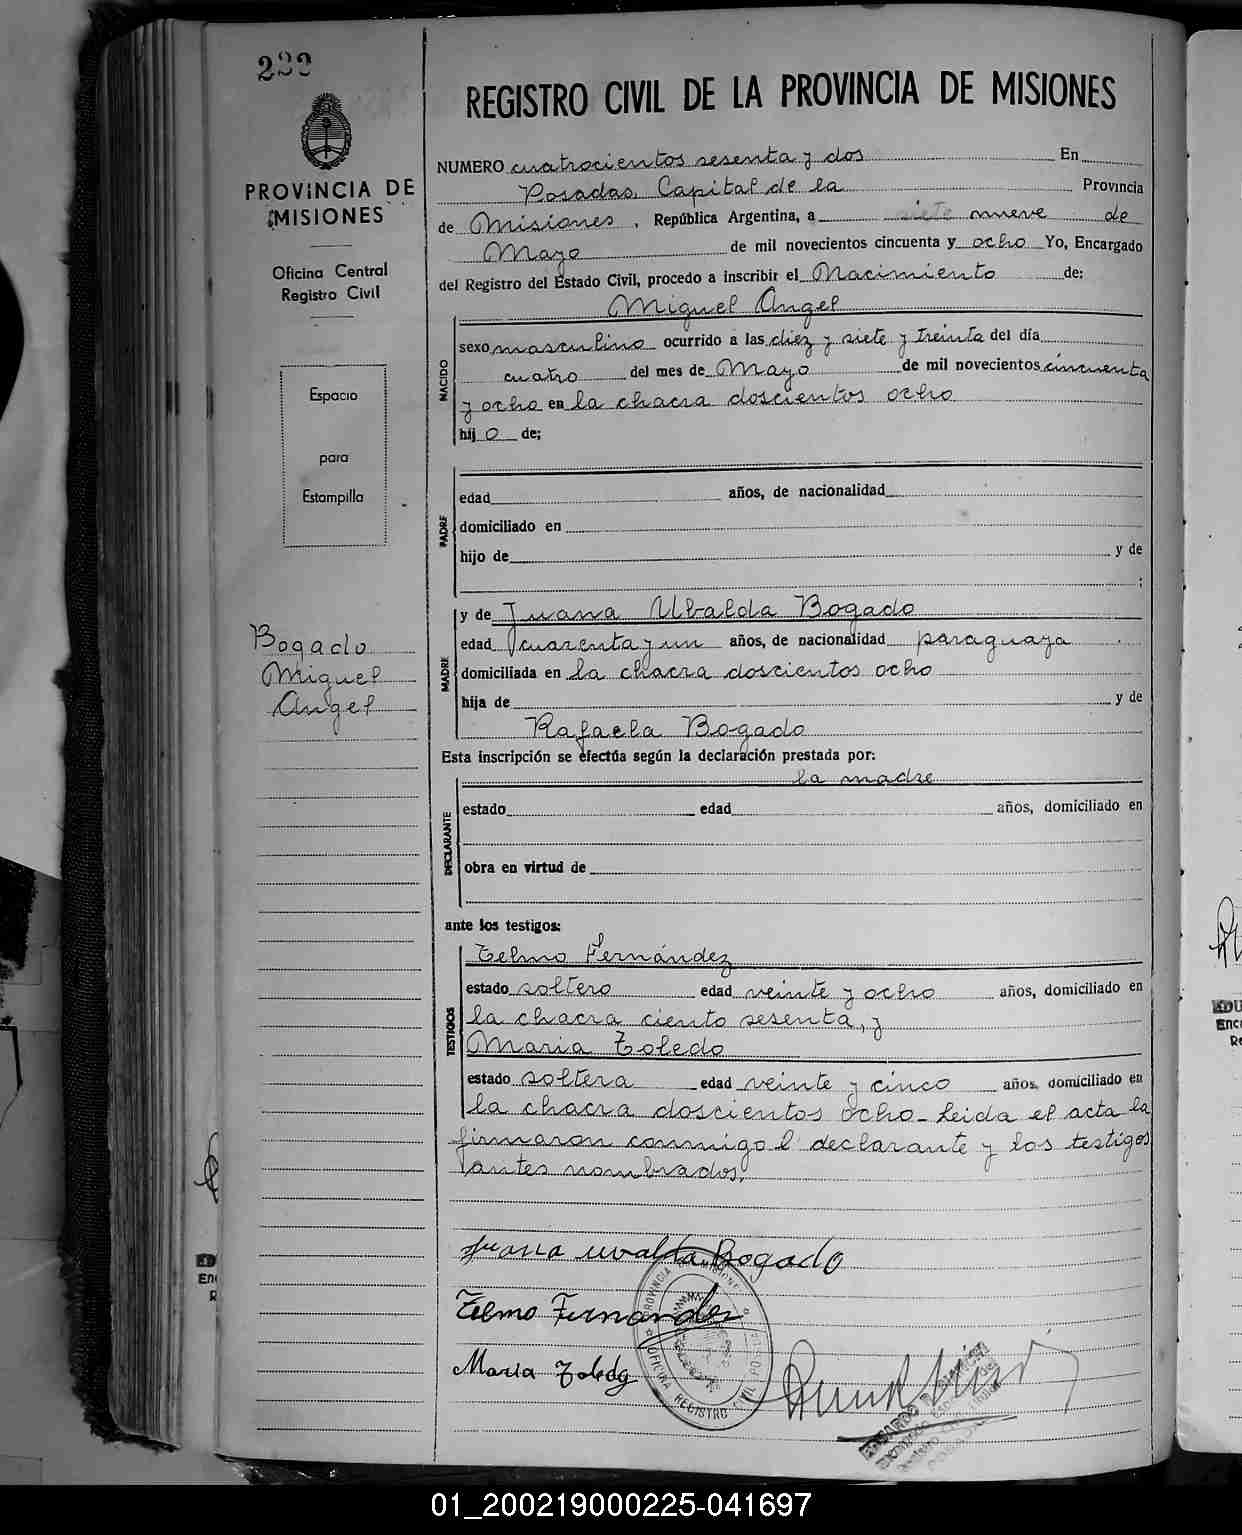 232
PROVINCIA DE
MISIONES
Oficina Central
Registro Civil
Espacio
para
Estampilla
Bogado
Miguel
Angel
REGISTRO CIVIL DE LA PROVINCIA DE MISIONES
NUMERO cuatrocientos sesenta y dos En
Posadas, Capital de la Provincia
de Misiones, República Argentina, a siete nueve de
Mayo de mil novecientos cincuenta y ocho Yo, Encargado
del Registro del Estado Civil, procedo a inscribir el Nacimiento de:
Miguel Angel
NACIDO
sexo masculino ocurrido a las diez y siete y treinta del día
cuatro del mes de Mayo de mil novecientos cincuenta
y ocho en la chacra doscientos ocho
hijo de;
PADRE
edad años, de nacionalidad
domiciliado en
hijo de y de
;
MADRE
y de Juana Ubalda Bogado
edad cuarenta y un años, de nacionalidad paraguaya
domiciliada en la chacra doscientos ocho
hija de y de
Rafaela Bogado
Esta inscripción se efectúa según la declaración prestada por:
la madre
DECLARANTE
estado edad años, domiciliado en
obra en virtud de
ante los testigos:
TESTIGOS
Telmo Fernández
estado soltero edad veinte y ocho años, domiciliado en
la chacra ciento sesenta, y
Maria Toledo
estado soltera edad veinte y cinco años, domiciliado en
la chacra doscientos ocho - Leida el acta la
firmaron conmigo l declarante y los testigos
antes nombrados.
Juana uvalda Bogado
Telmo Fernandez
Maria Toledo
PROVINCIA DE MISIONES
OFICINA REGISTRO CIVIL POSADAS
EDU
Enc
Re
01_200219000225-041697